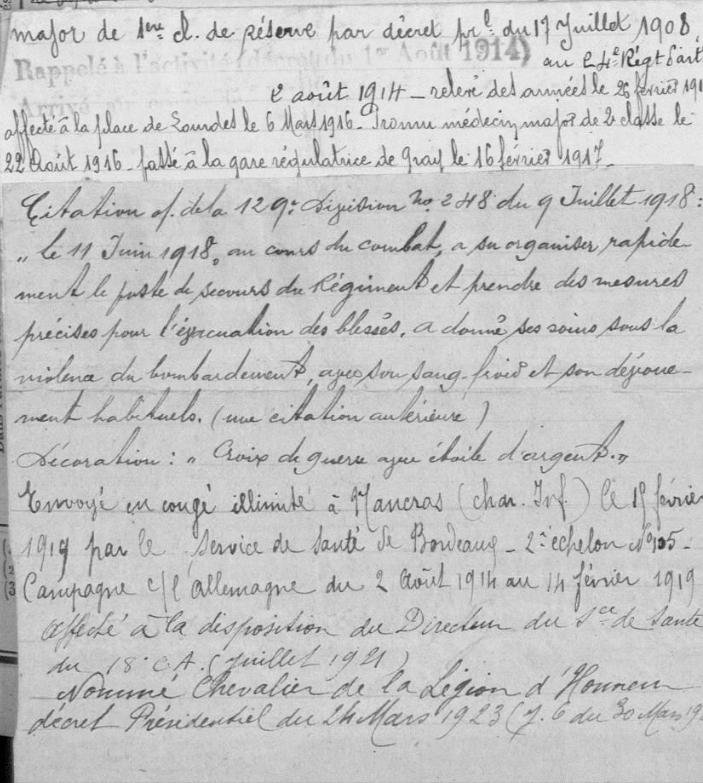 major de 1ère cl. de réserve par décret prl du 17 Juillet 1908,
Rappelé à l'activité (décret du 1er Août 1914) au 24e Régt d'art
Arrivé au corps
2 août 1914 - relevé des armées le 26 février 191
affecté à la place de Lourdes le 6 Mars 1916. Promu médecin major de 2e classe le
22 Août 1916. passé à la gare régulatrice de Gray le 16 février 1917.
Citation of. de la 129e Division No 248 du 9 Juillet 1918 :
" le 11 Juin 1918, au cours du combat, a su organiser rapide-
ment le poste de secours du Régiment et prendre des mesures
précises pour l'évacuation des blessés, a donné ses soins sous la
violence du bombardement, avec son sang-froid et son dévoue-
ment habituels. (une citation antérieure)
Décoration : " Croix de guerre avec étoile d'argent. "
Envoyé en congé illimité à Nancras (Char. Inf.) le février
1919 par le Service de Santé de Bordeaux - 2e échelon No 105 -
Campagne c/ l'Allemagne du 2 Août 1914 au 14 février 1919
Affecté à la disposition du Directeur du Sce de Santé
du 18e C.A. (Juillet 1921)
Nommé Chevalier de la Légion d'Honneur
décret Présidentiel du 24 Mars 1923 (J. O du 30 Mars 19